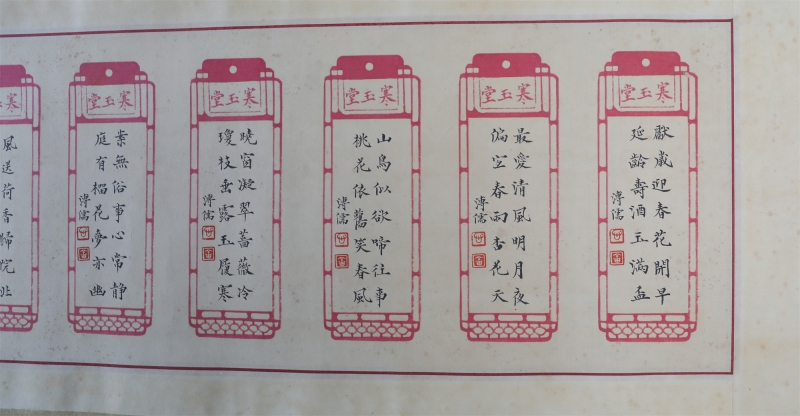 寒玉堂
獻歲迎春花開早
延齡壽酒玉滿盃
溥儒
寒玉堂
最愛清風明月夜
偏宜春雨杏花天
溥儒
寒玉堂
山鳥似欲啼往事
桃花依舊笑春風
溥儒
寒玉堂
曉窗凝翠薔薇冷
瓊枝垂露玉屐寒
溥儒
寒玉堂
案無俗事心常静
庭有榴花夢亦幽
溥儒
寒玉堂
風送荷香歸院北